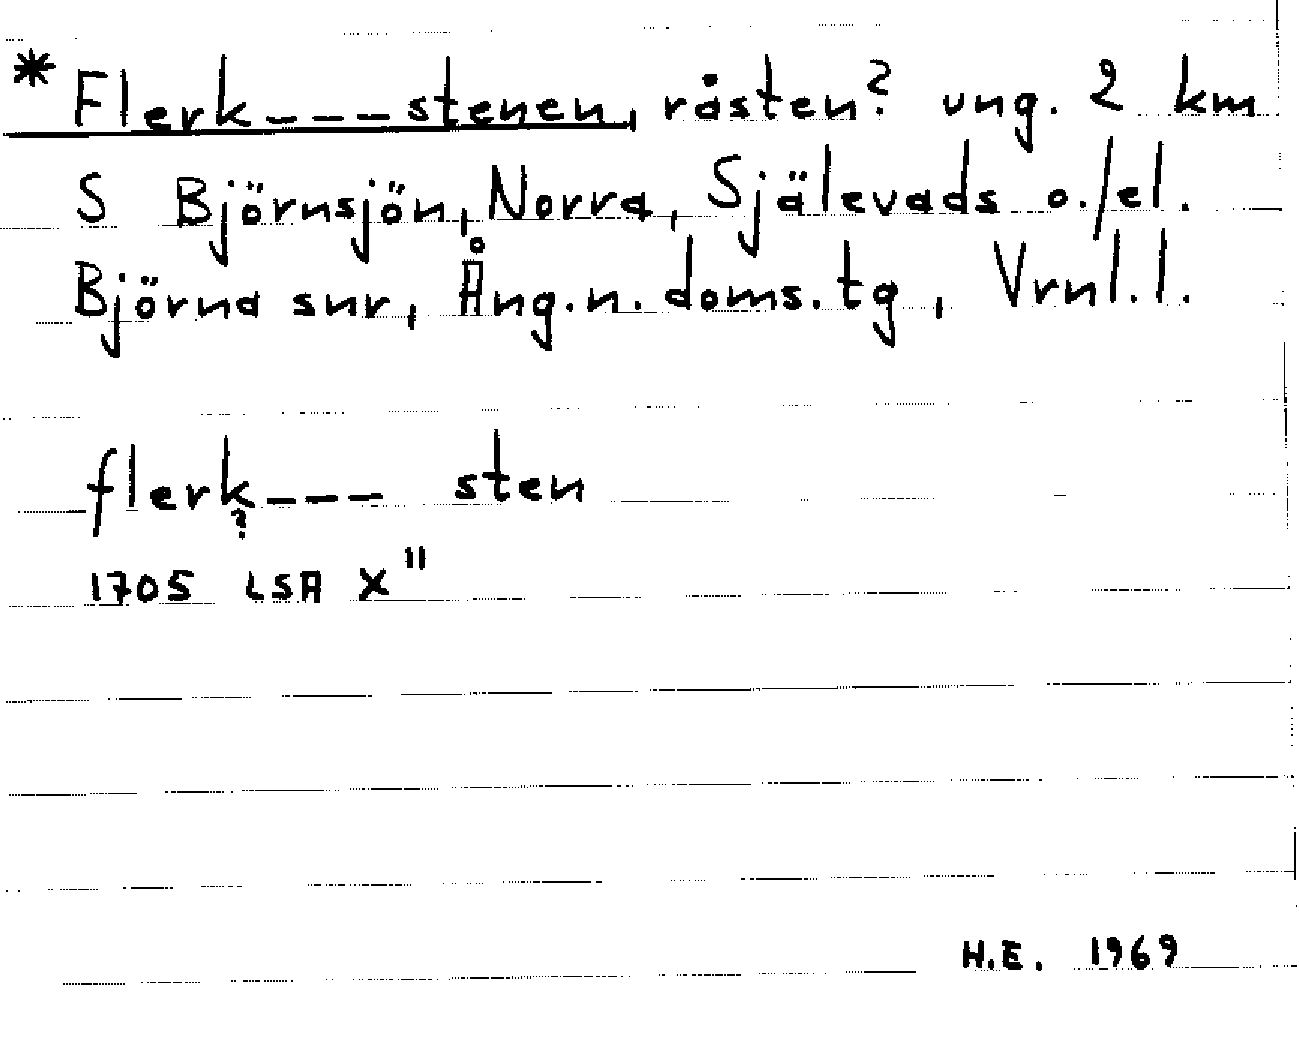 * Flerk---stenen, råsten? ung. 2 km
S Björnsjön, Norra, Själevads o./el.
Björna snr, Ång.n. doms.tg, Vrnl.l.
flerk--- sten
?
1705 LSA X"
H.E. 1969